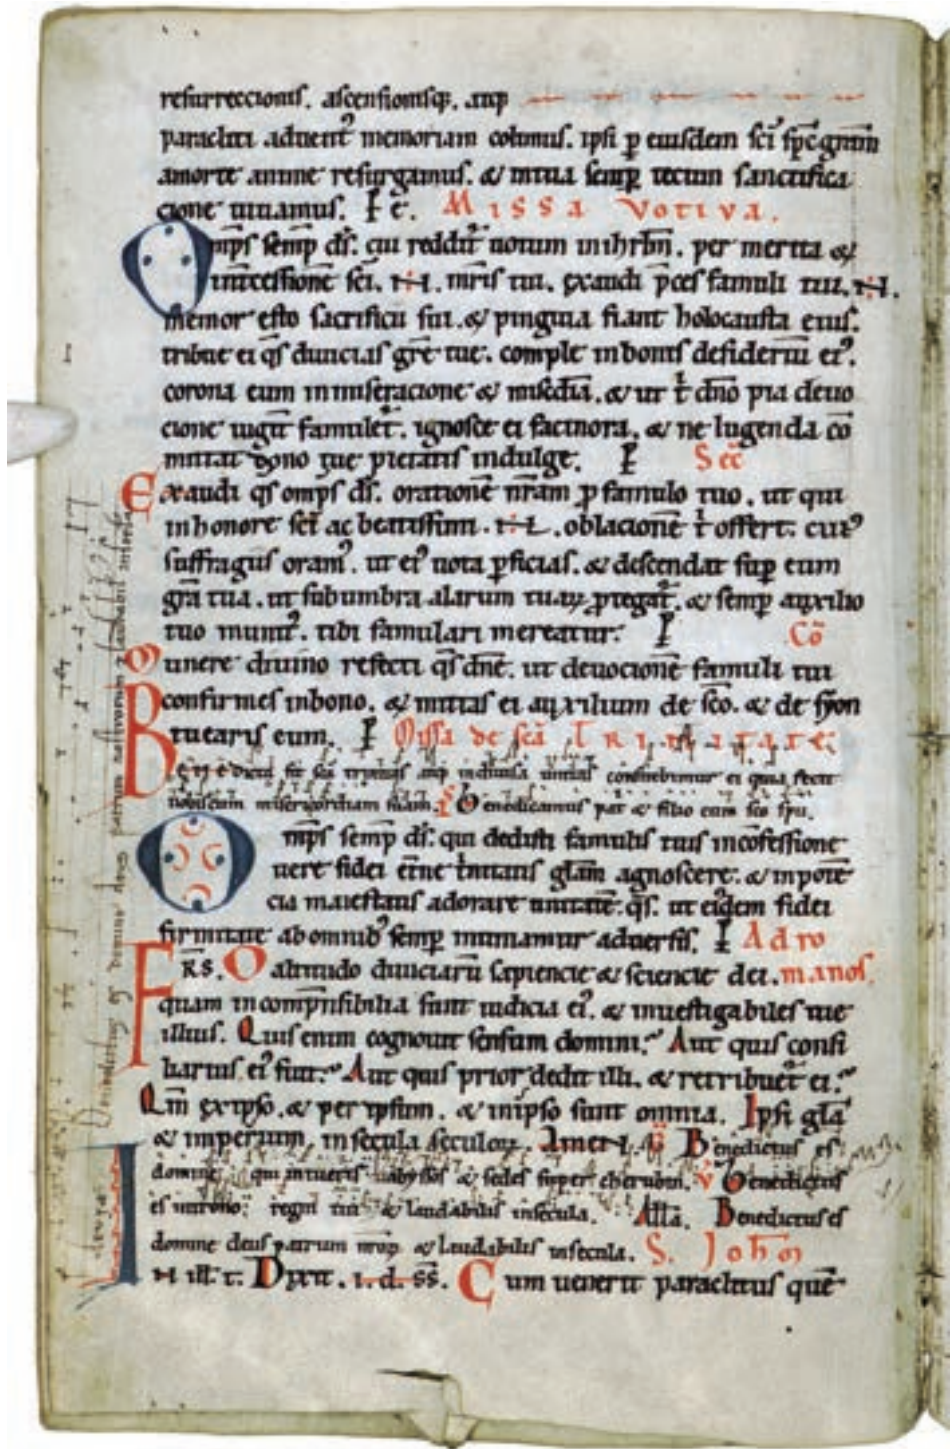 resurreccionis. ascensionisq;. atq;
paracliti aduent᷒ memoriam colimus. ipsi p̲ eiusdem sc̄i sp̄c gr̄am
amorte anime resurgamus. & inuita semp̲ tecum sanctifica
cione uiuamus. P e᷑. Missa Votiva.
Omp̄s semp̲ ds̄. qui reddit᷑ uotum inihrl̄m. per merita &
int̄cessionē sc̄i. .N. mr̄is tui. exaudi p̄ces famuli tui. .N.
memor esto sacrificii sui. & pinguia fiant holocausta eius.
tribue ei qs̄ diuicias gr̄e tue. comple inbonis desideriū ei᷒.
corona eum inmiseracione & mis̄edia. & ut t᷑ dn̄o pia deuo
cione iugit᷑ famulet᷑. ignosce ei facinora. & ne lugenda cō
mittat dono tue pietatis indulge. P Sec̄
Exaudi qs̄ omp̄s ds̄. orationē nr̄am p̲ famulo tuo. ut qui
inhonore sc̄i ac beatissimi. .N. oblacionē t᷑ offert. cui᷒
suffragiis oram᷒. ut ei᷒ uota p̲ficias. & descendat sup̲ eum
gr̄a tua. ut subumbra alarum tuaꝝ p̲tegat᷑. & semp̲ auxilio
tuo munit᷒. tibi famulari mereatur. P Cō
Munere diuino refecti qs̄ dn̄e. ut deuocionē famuli tui
confirmes inbono. & mittas ei auxilium de sc̄o. & de syon
tuearis eum. P Missa de sc̄a Trinitate.
Benedicta sit sc̄a trinitas atq; indiuisa unitas confitebimur ei quia fecit
nobiscum misericordiam suam. Benedicamus pat᷑ & filio cum sc̄o sp̄u.
Omp̄s semp̲ ds̄. qui dedisti famulis tuis incōfessione
uere fidei et̄ne t᷑nitatis gl̄am agnoscere. & inpotē
cia maiestatis adorare unitatē. qs̄. ut ei᷒dem fidei
firmitate abomnib᷒ semp̲ muniamur aduersis. P Ad ro
Fr̄s. O altitudo diuiciarū sapiencie & sciencie dei. manos.
quam incomp̄nsibilia sunt iudicia ei᷒. & inuestigabiles uie
illius. Quis enim cognouit sensum domini. Aut quis consi
liarius ei᷒ fuit. Aut quis prior dedit illi. & retribuet᷑ ei.
Qm̄ exipso. & per ipsum. & inipso sunt omnia. Ipsi gl̄a
& imperium. insecula seculoꝝ. AmeN. G̅ Benedictus es
domine qui intueris abyssos & sedes super cherubin. V᷑ Benedictus
es introno regni tui & laudabilis insecula. All̄a. Benedictus es
domine deus patrum nr̄oꝝ & laudabilis insecula. S. Joh̄m
IN ill̄ t̄. Dixit. i. d. s̄s̄. Cum uenerit paraclitus quē
Benedictus es domine deus patrum nostrorum & laudabilis insecula